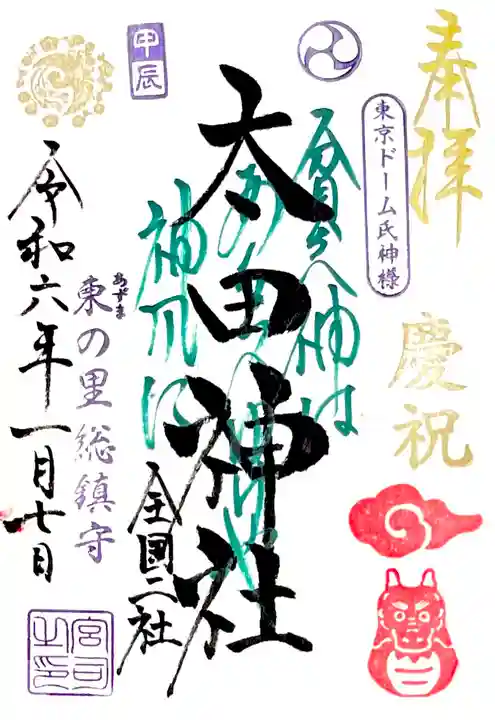 奉拝
慶祝
東京ドーム氏神様
太田神社
全国二社
甲辰
あずま
東の里総鎮守
令和六年一月七日
宮司之印